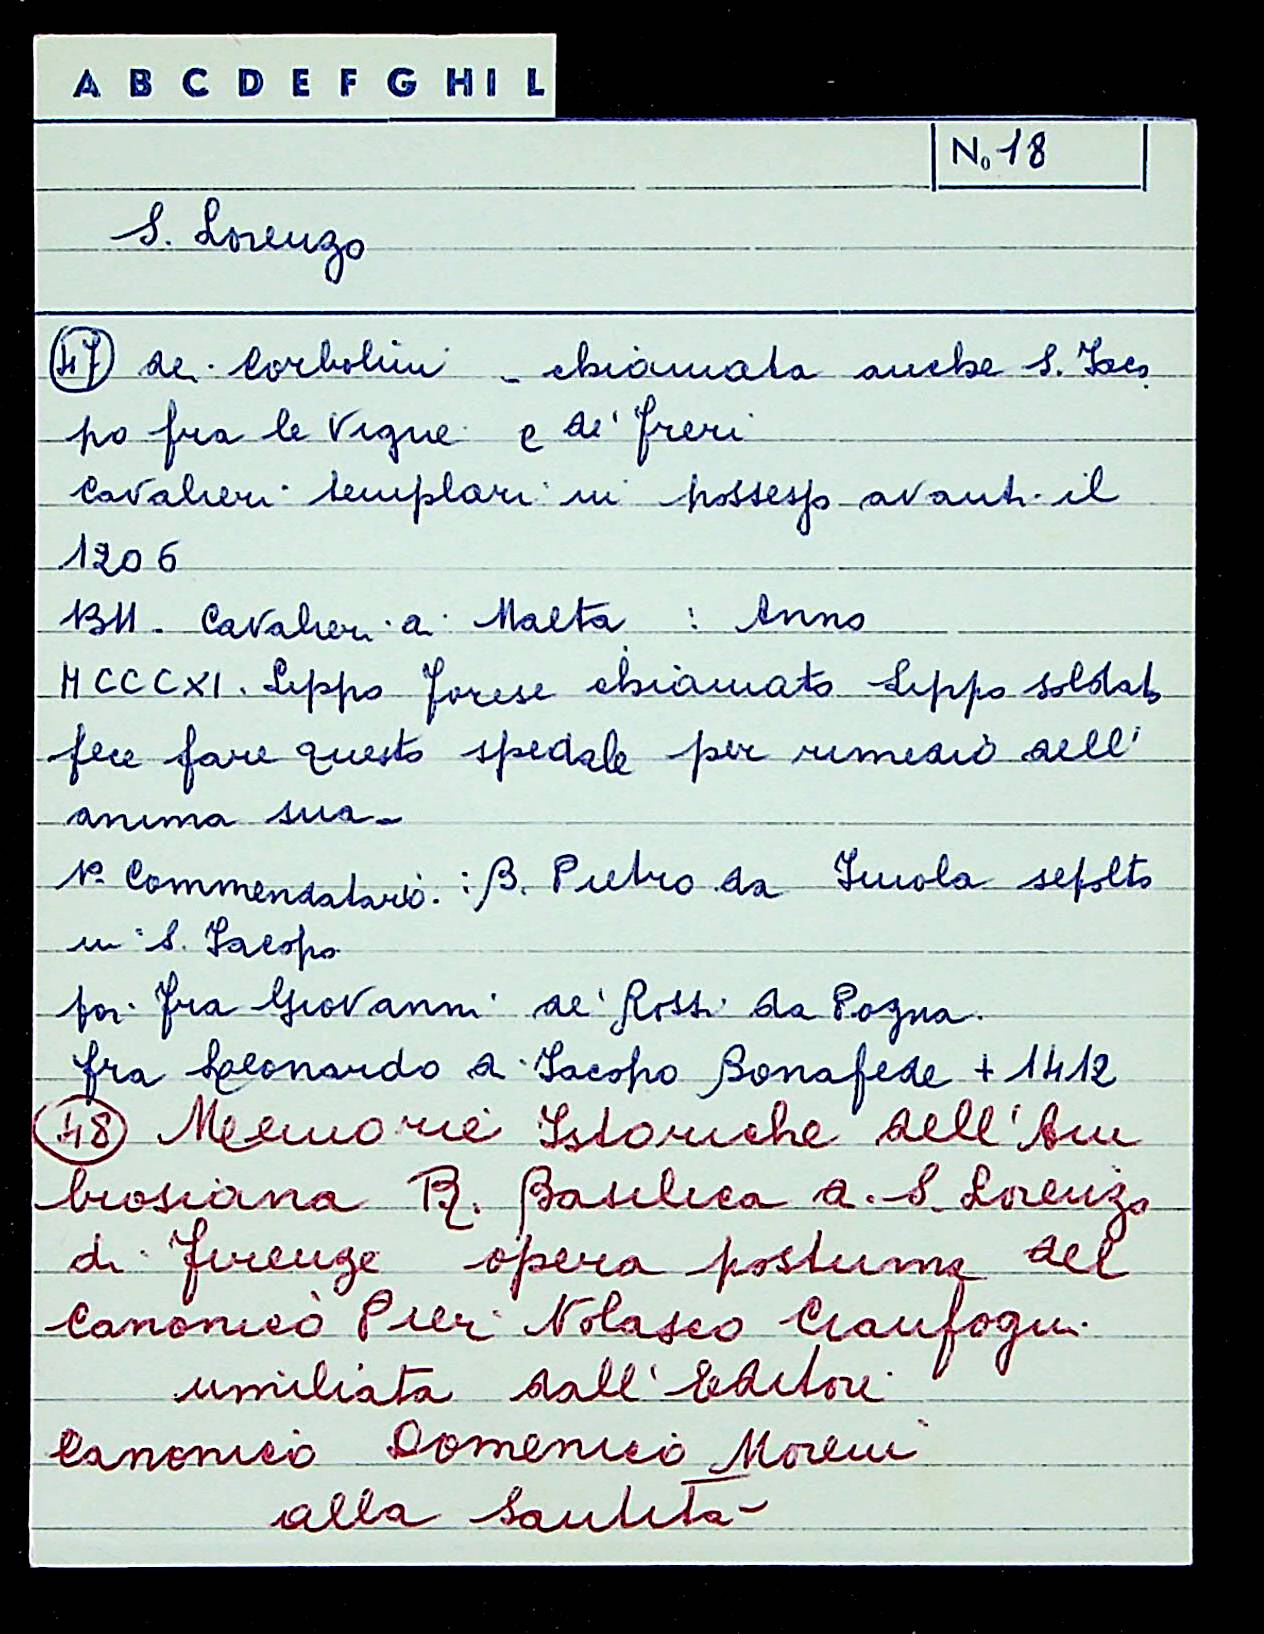 A B C D E F G H I L
No 18
S. Lorenzo
47 de' Corbolini - chiamata anche S. Jaco
po fra le Vigne e de' freri
Cavalieri templari in possesso avanti il
1206
1311. Cavalieri di Malta : Anno
MCCCXI. Lippo forese chiamato Lippo soldato
fece fare questo spedale per rimedio dell'
anima sua -
1° Commendatario : B. Pietro da Imola sepolto
in S. Jacopo
poi fra Giovanni de' Rossi da Pogna.
fra Leonardo di Jacopo Bonafede + 1412
48 Memorie Istoriche dell'Am
brosiana R. Basilica di S. Lorenzo
di Firenze opera postuma del
Canonico Pier Nolasco Cianfogni
umiliata dall' Editori
Canonico Domenico Moreni
alla Santità -